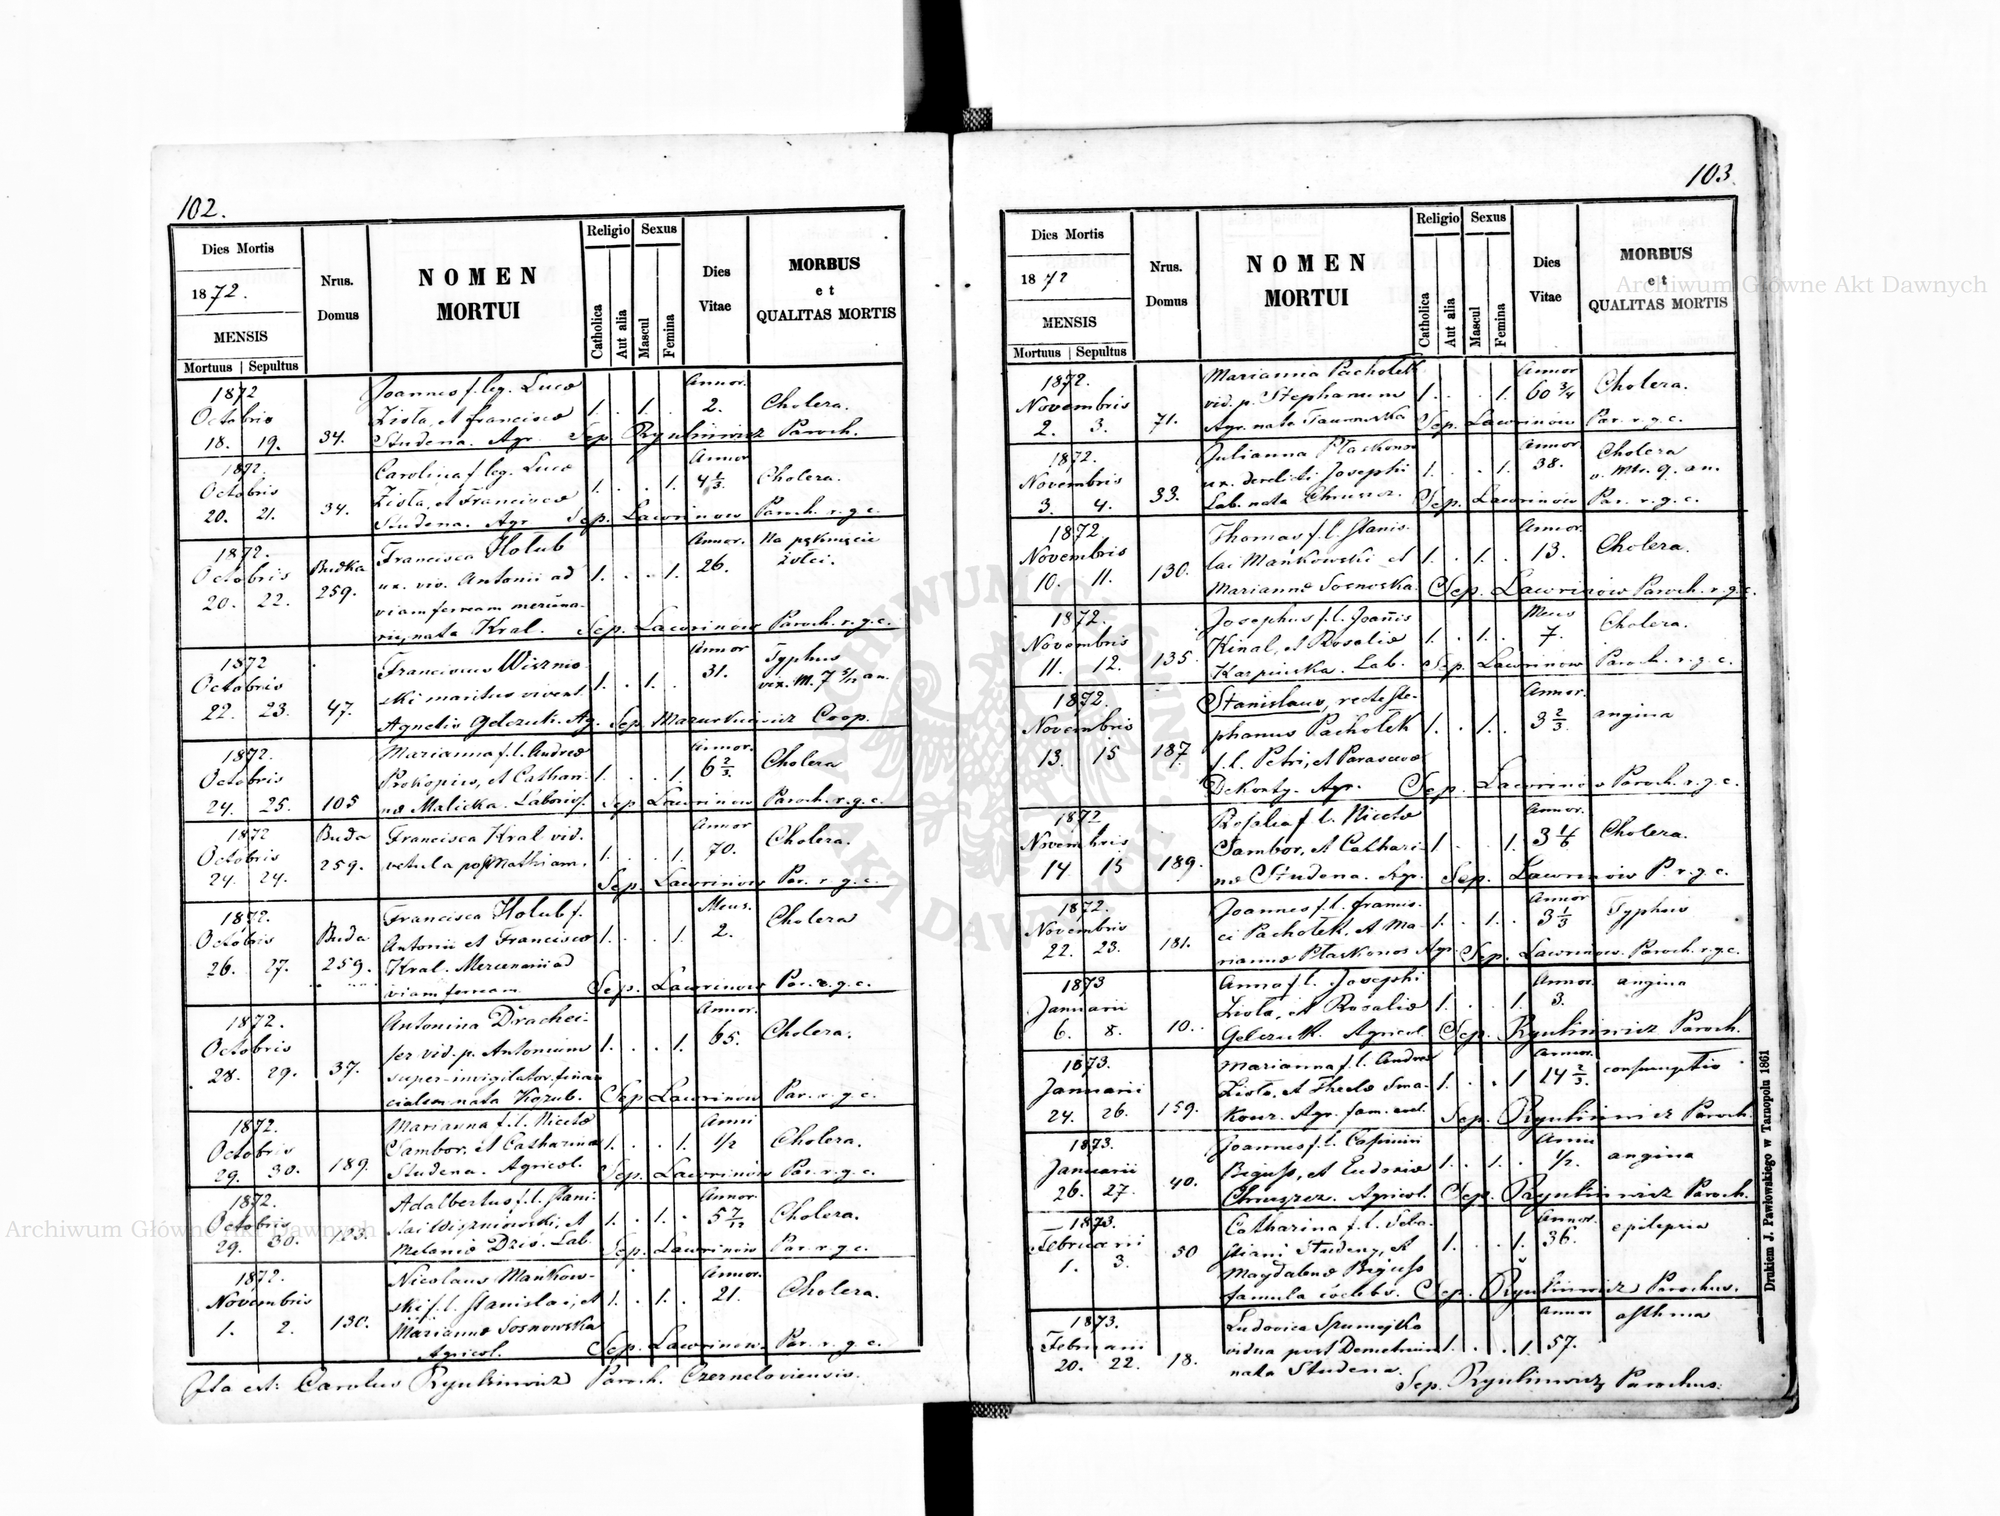 102.
Dies Mortis
1872.
MENSIS
Mortuus | Sepultus
Nrus.
Domus
NOMEN
MORTUI
Religio
Catholica
Aut alia
Sexus
Mascul
Femina
Dies
Vitae
MORBUS
et
QUALITAS MORTIS
1872
Octobris
18. 19.
34.
Joannes f. leg. Lucæ
Zioła, et Franciscæ
Studena. Agr.
1. . 1. .
Annor.
2.
Cholera.
Sep. Ryukiewicz Paroch.
1872.
Octobris
20. 21.
34.
Carolina f. leg. Lucæ
Zioła, et Franciscæ
Studena. Agr
1. . . 1.
Annor
4 1/3.
Cholera.
Sep. Lawrinow Paroch. r. g. c.
1872.
Octobris
20. 22.
Budka
259.
Francisca Holub
ux. viv. Antonii ad
viam ferream mercena-
rii, nata Kral.
1. . . 1.
Annor.
26.
Na pęknięcie
żółci.
Sep. Lawrinow Paroch. r. g. c.
1872
Octobris
22. 23.
47.
Franciscus Wiśnio-
ski maritus vivent.
Agnetis Gelczuk. Ag.
1. . 1. .
Annor
31.
Typhus
vix. M. 7 5/12 an.
Sep. Mazurkiewicz Coop.
1872.
Octobris
24. 25.
105
Marianna f. l. Andreæ
Prokopiw, et Cathari-
næ Malicka. Laborios.
1. . . 1.
Annor.
6 2/3.
Cholera
Sep. Lawrinow Paroch. r. g. c.
1872
Octobris
24. 24.
Buda
259.
Francisca Kral vid.
vetula post Mathiam.
1. . . 1.
Annor
70.
Cholera.
Sep. Lawrinow Par. r. g. c.
1872.
Octobris
26. 27.
Buda
259.
Francisca Holub f.
Antonii et Franciscæ
Kral. Mercenarii ad
viam ferream.
1. . . 1.
Mens.
2.
Cholera
Sep. Lawrinow Par. r. g. c.
1872.
Octobris
28. 29.
37.
Antonina Drachei-
ser vid. p. Antonium
super-invigilator. finan
cialem nata Kozub.
1. . . 1.
Annor.
65.
Cholera.
Sep. Lawrinow Par. r. g. c.
1872.
Octobris
29. 30.
189.
Marianna f. l. Nicetæ
Sambor, et Catharinæ
Studena. Agricol.
1. . . 1.
Anni
1/2
Cholera.
Sep. Lawrinow Par. r. g. c.
1872.
Octobris
29. 30.
123.
Adalbertus f. l. Stani-
lai Wiśniowski, et
Melaniæ Dziś. Lab.
1. . 1. .
Annor
5 7/12
Cholera.
Sep. Lawrinow Par. r. g. c.
1872.
Novembris
1. 2.
130.
Nicolaus Mankow-
ski f. l. Stanislai, et
Mariannæ Sosnowska
Agricol.
1. . 1. .
Annor.
21.
Cholera.
Sep. Lawrinow Par. r. g. c.
Ita est: Carolus Ryukiewicz Paroch. Czerneloviensis.
103.
Dies Mortis
1872
MENSIS
Mortuus | Sepultus
Nrus.
Domus
NOMEN
MORTUI
Religio
Catholica
Aut alia
Sexus
Mascul
Femina
Dies
Vitae
MORBUS
et
QUALITAS MORTIS
1872.
Novembris
2. 3.
71.
Marianna Pachołek
vid. p. Stephanum
Agr. nata Taurowska
1. . . 1.
Annor
60 3/4
Cholera.
Sep. Lawrinow Par. r. g. c.
1872.
Novembris
3. 4.
33.
Julianna Płaskonos
ux. derelicti Josephi
Lab. nata Chruszcz.
1. . . 1.
Annor
38.
Cholera
v. Mtr. 9. an.
Sep. Lawrinow Par. r. g. c.
1872
Novembris
10. 11.
130.
Thomas f. l. Stanis-
lai Mańkowski et
Mariannæ Sosnoska.
1. . 1. .
Annor.
13.
Cholera.
Sep. Lawrinow Paroch. r. g. c.
1872.
Novembris
11. 12.
135.
Josephus f. l. Joañis
Kinal, et Rosaliæ
Karpińska. Lab.
1. . 1. .
Mens
7.
Cholera.
Sep. Lawrinow Paroch. r. g. c.
1872.
Novembris
13. 15
187.
Stanislaus, recte Ste-
phanus Pachołek
f. l. Petri, et Parascevæ
Dekorty. Agr.
1. . 1. .
Annor.
3 2/3.
angina
Sep. Lawrinow Paroch. r. g. c.
1872
Novembris
14 15
189.
Rosalia f. l. Nicetæ
Sambor, et Cathari-
næ Studena. Agr.
1 . . 1.
Annor.
3 1/6
Cholera.
Sep. Lawrinow P. r. g. c.
1872.
Novembris
22. 23.
181.
Joannes f. l. Francis-
ci Pachołek, et Ma-
riannæ Płaskonos Agr.
1. . 1. .
Annor
3 1/3
Typhus
Sep. Lawrinow Paroch. r. g. c.
1873
Januarii
6. 8.
10.
Anna f. l. Josephi
Zioła, et Rosaliæ
Gelczuk. Agricol.
1. . . 1.
Annor.
3.
angina
Sep. Ryukiewicz Paroch.
1873.
Januarii
24. 26.
159.
Marianna f. l. Andreæ
Zioło, et Theclæ Sma-
kouz. Agr. fam. cæl.
1. . . 1
Annor.
14 2/3.
consumptio
Sep. Ryukiewicz Paroch.
1873.
Januarii
26. 27.
40.
Joannes f. l. Casimiri
Biguss, et Eudoxiæ
Chruszcz. Agricol.
1. . 1. .
Anni
1/2.
angina
Sep. Ryukiewicz Paroch.
1873.
Februarii
1. 3.
50
Catharina f. l. Seba-
stiani Studeny, et
Magdalenæ Biguss
famula cœlebs.
1. . . 1.
Annor.
36.
epilepsia
Sep. Ryukiewicz Parochus.
1873.
Februarii
20. 22.
18.
Ludovica Szumejko
vidua post Demetrium
nata Studena.
1. . . 1.
Annor
57.
asthma
Sep. Ryukiewicz Parochus.
Drukiem J. Pawłowskiego w Tarnopolu 1861
Archiwum Główne Akt Dawnych
Archiwum Główne Akt Dawnych
ARCHIWUM GŁÓWNE AKT DAWNYCH